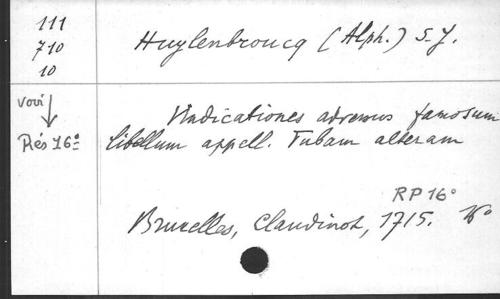 111
710
10
Huylenbroucq (Alph.) S.J.
voir
Rés 16°
Vindicationes adversus famosum
libellum appell. Tubam alteram
RP 16°
Bruxelles, Claudinot, 1715. 16°